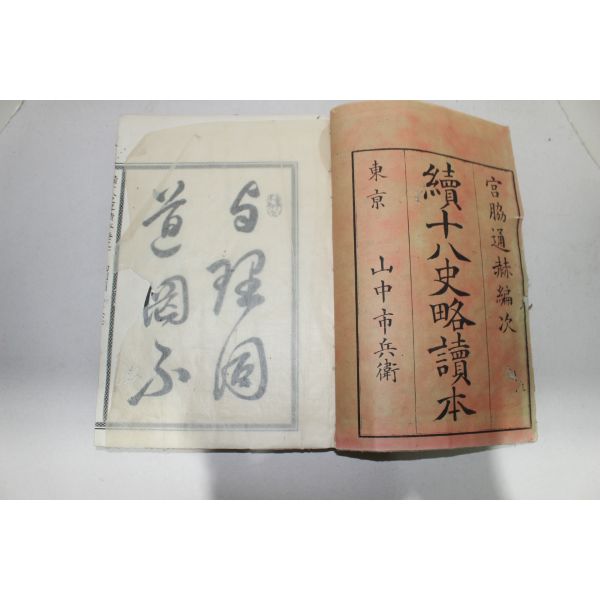 宮脇通赫編次
續十八史略讀本
東京 山中市兵衛
与理同
道図不